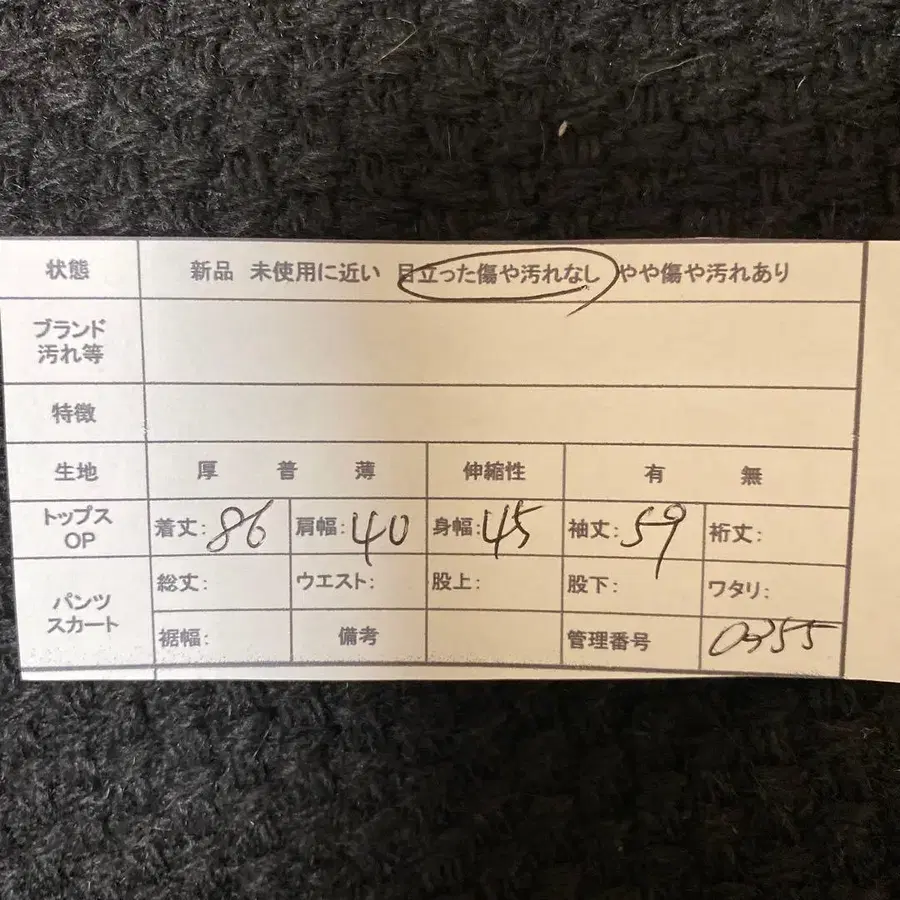 状態 新品 未使用に近い 目立った傷や汚れなし やや傷や汚れあり
ブランド
汚れ等
特徴
生地 厚 普 薄 伸縮性 有 無
トップス
OP
着丈: 86 肩幅: 40 身幅: 45 袖丈: 59 裄丈:
パンツ
スカート
総丈: ウエスト: 股上: 股下: ワタリ:
裾幅: 備考 管理番号 0355